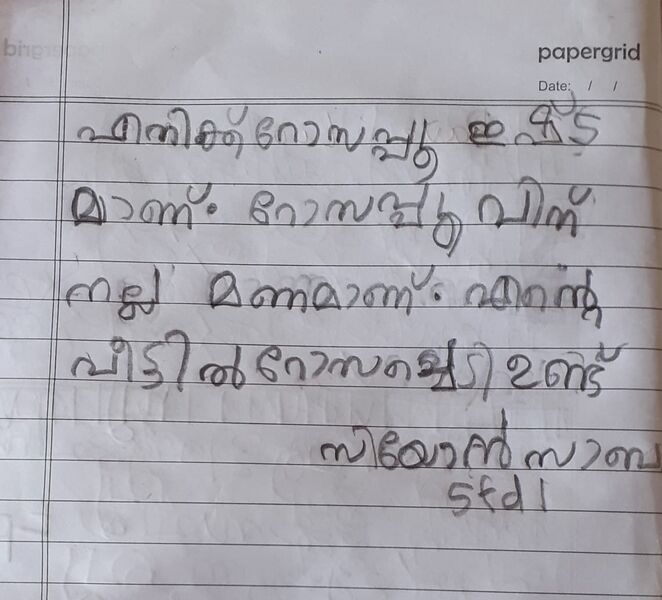 papergrid
Date: / /
എനിക്ക് റോസപ്പൂ ഇഷ്ട
മാണ്. റോസപ്പൂവിന്
നല്ല മണമാണ്. എന്റെ
വീട്ടിൽ റോസചെടി ഉണ്ട്
സിയോൺ സാബു
Std 1